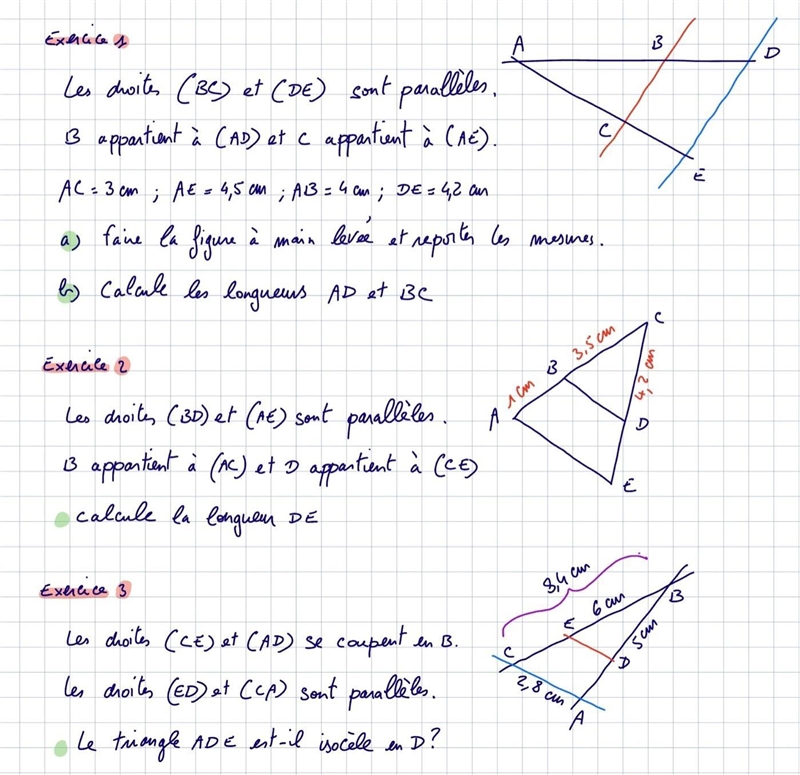 Exercice 1
Les droites (BC) et (DE) sont parallèles.
B appartient à (AD) et C appartient à (AE).
AC = 3 cm ; AE = 4,5 cm ; AB = 4 cm ; DE = 4,2 cm
a) faire la figure à main levée et reporter les mesures.
b) Calcule les longueurs AD et BC
A
B
D
C
E
Exercice 2
Les droites (BD) et (AE) sont parallèles.
B appartient à (AC) et D appartient à (CE)
calcule la longueur DE
C
3,5 cm
B
1 cm
4,2 cm
A
D
E
Exercice 3
Les droites (CE) et (AD) se coupent en B.
Les droites (ED) et (CA) sont parallèles.
Le triangle ADE est-il isocèle en D?
8,4 cm
6 cm
B
E
5 cm
C
D
2,8 cm
A